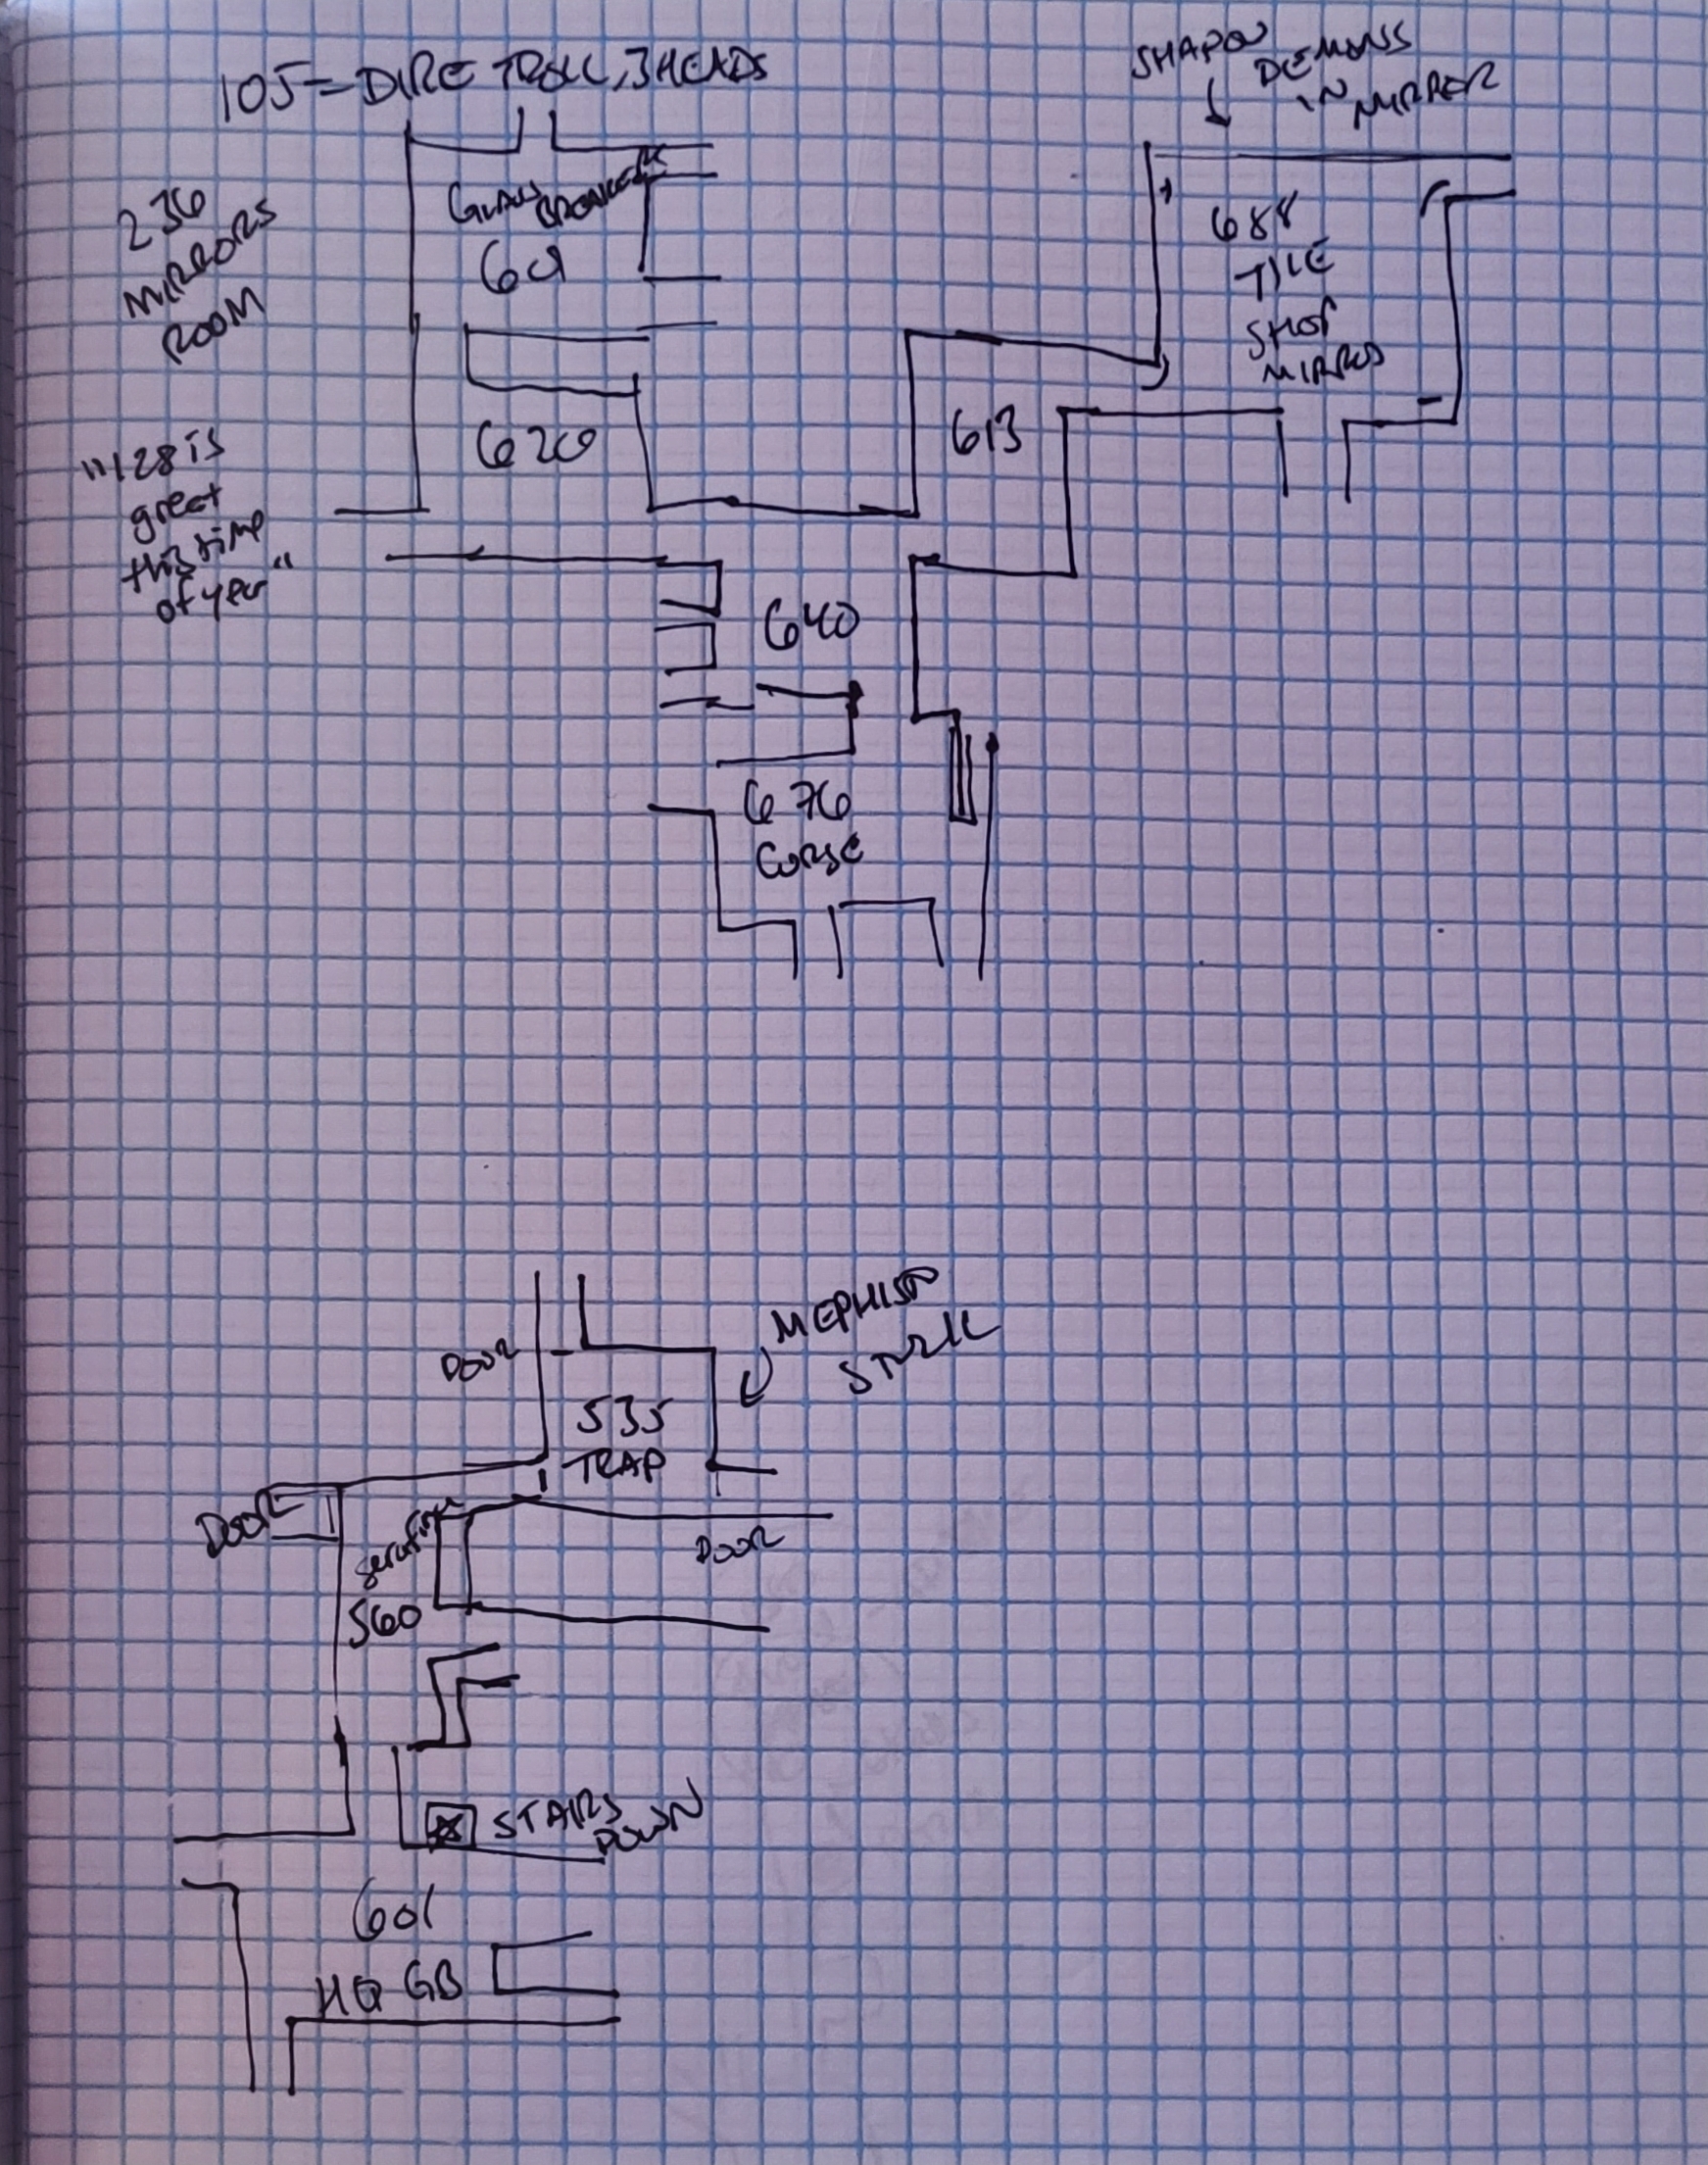 105 = DIRE TROLL, 3 HEADS
SHADOW
DEMONS
IN MIRROR
236
MIRRORS
ROOM
GLASS
BREAKER
601
688
TILE
SHOP
MIRROS
"128 is
great
this time
of year"
620
613
640
676
CORSE
MEPHISTO
DOOR
535
TRAP
DOOR
DOOR
560
STAIRS
DOWN
601
HQ GB